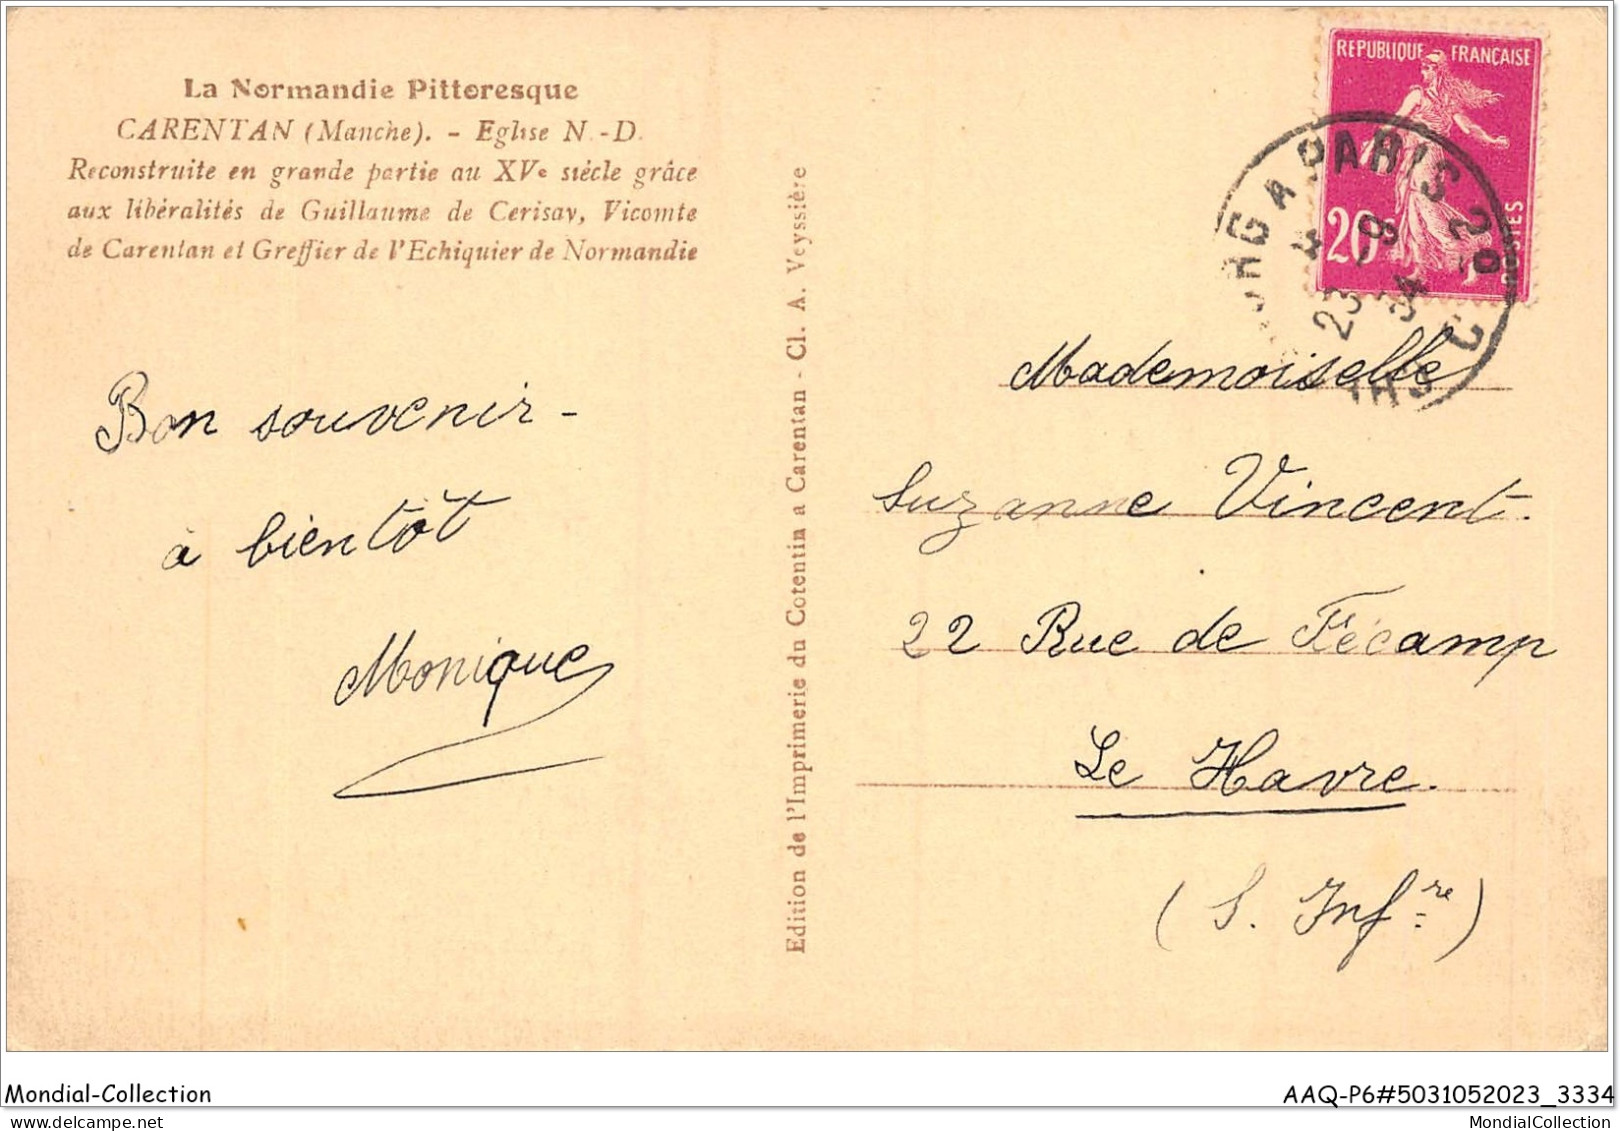 La Normandie Pittoresque
CARENTAN (Manche). - Eglise N.-D.
Reconstruite en grande partie au XVe siècle grâce
aux libéralités de Guillaume de Cerisay, Vicomte
de Carentan et Greffier de l'Echiquier de Normandie
Bon souvenir -
à bientôt
Monique
Edition de l'Imprimerie du Cotentin a Carentan - Cl. A. Veyssière
REPUBLIQUE FRANÇAISE
20c
POSTES
PARIS
23
34
Mademoiselle
Suzanne Vincent.
22 Rue de Fécamp
Le Havre.
(S. Infre)
Mondial-Collection
AAQ-P6#5031052023_3334
MondialCollection